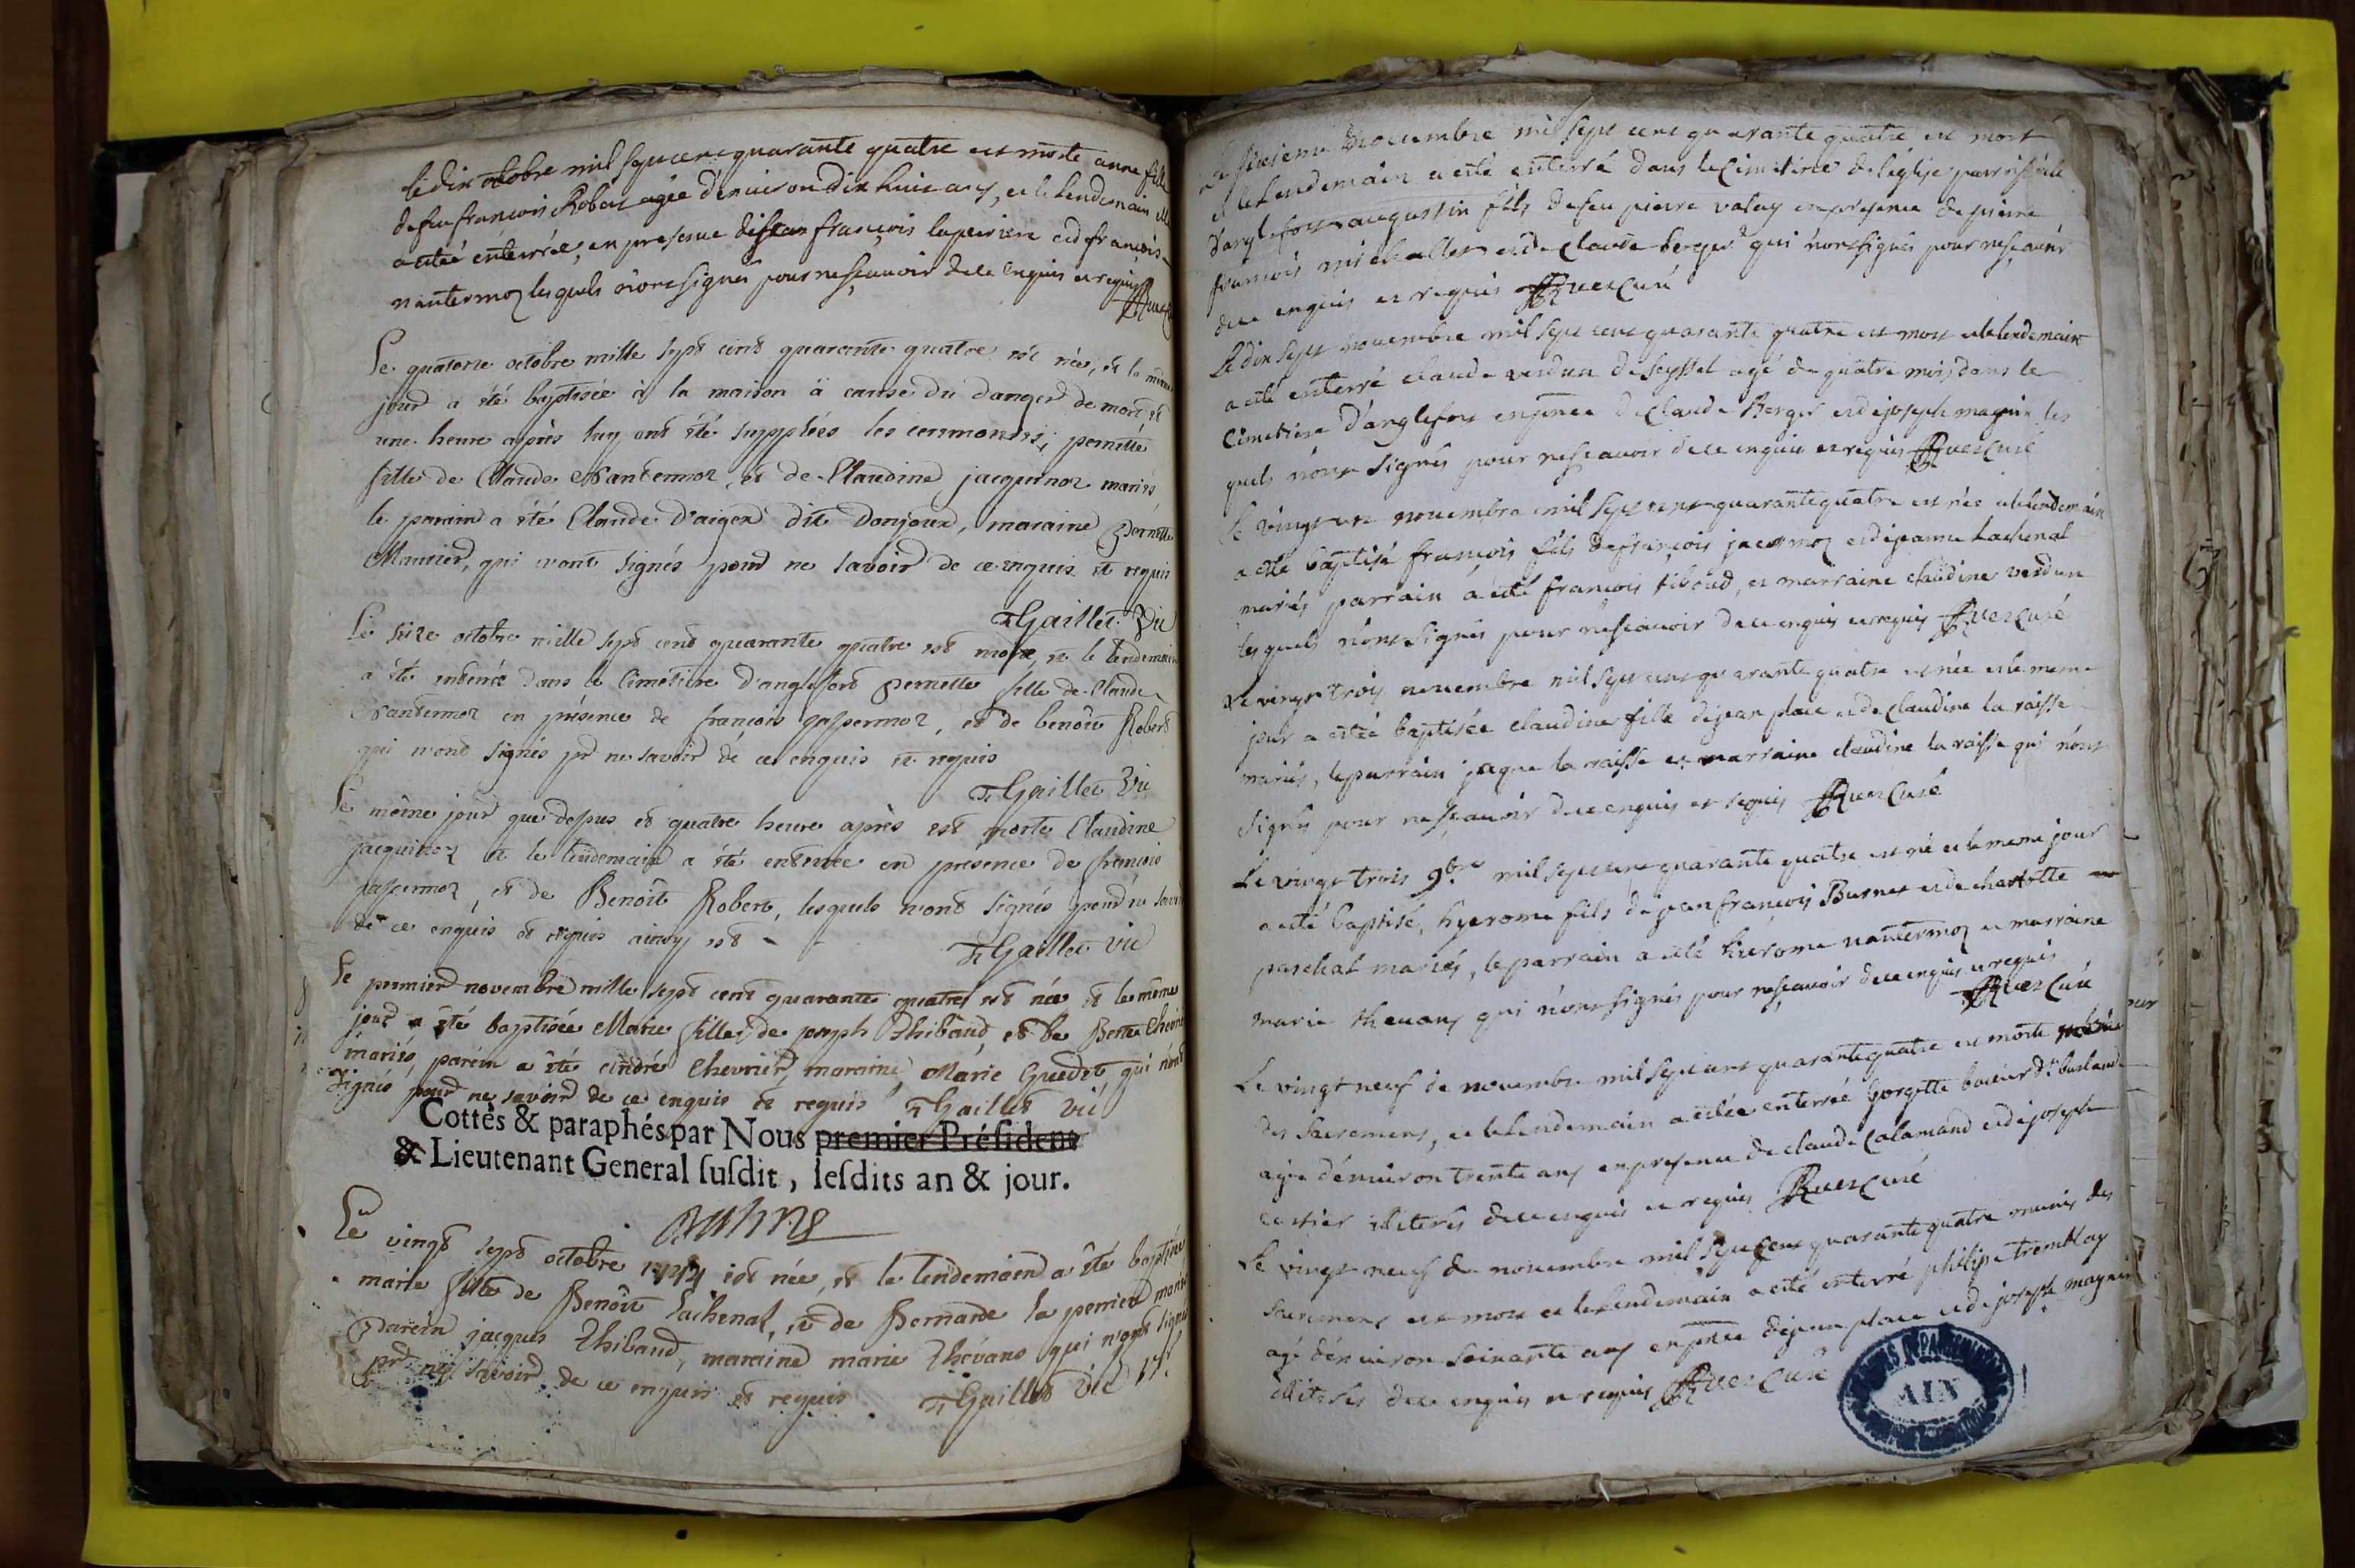 le dix octobre mil sept cent quarante quatre est morte anne fille
de feu françois Robert agée d'environ dix huit ans, et le lendemain elle
a etée enterrée, en presence de jean françois laperriere et de françois
nantermoz lesquels n'ont signés pour ne sçavoir de ce enquis et requis
Le quatorze octobre mille sept cent quarante quatre est née, et le même
jour a été baptisée à la maison à cause du danger de mort et
une heure après luy ont été supplées les ceremonies, pernette
fille de Claude Nantermoz, et de Claudine jacquinoz mariés
le parain a été Claude D'aiger dit Donjoux, maraine pernette
Manier, qui n'ont signés pour ne savoir de ce enquis et requis
Gaillet Vic
Le seize octobre mille sept cent quarante quatre est morte, et le lendemain
a été enterrée dans le Cimetiere d'anglefort pernette fille de Claude
Nantermoz en présence de françois passermoz, et de benoit Robert
qui n'ont signés pr ne savoir de ce enquis et requis
Gaillet Vic
Le même jour que depus et quatre heure après est morte Claudine
jacquinoz et le lendemain a été enterrée en présence de françois
passermoz, et de Benoit Robert, lesquels n'ont signés pour ne savoir
de ce enquis et requis ainsy est
Gaillet vic
Le premier novembre mille sept cent quarante quatre est née et le même
jour a été baptisée Marie fille de joseph Thibaud, et de
mariés, parein a été andré Chevrier, maraine Marie Guedet qui n'ont
signés pour ne savoir de ce enquis et requis Gaillet Vic
Cottés & paraphés par Nous premier Président
& Lieutenant General susdit, lesdits an & jour.
Le vingt sept octobre 1744 est née, et le lendemain a été baptisée
marie fille de Benoit Lachenal, et de Bernarde la perriere mariés
parein jacques Thibaud, maraine marie Thévans qui n'ont signés
pr ne savoir de ce enquis et requis Gaillet Vic
novembre mil sept cent quarante quatre est mort
et le lendemain a eté enterré dans le Cimetiere de l'église parroissiale
d'anglefort augustin fils de feu pierre valay en presence de pierre
françois michallet et de Claude berger qui n'ont signés pour ne sçavoir
de ce enquis et requis Ruez Curé
Le dix sept novembre mil sept cent quarante quatre est mort et le lendemain
a eté enterré claude verdun de Seyssel agé de quatre mois dans le
Cimetiere d'anglefort en pnce de Claude Berger et de joseph magnin les
quels n'ont signés pour ne sçavoir de ce enquis et requis Ruez Curé
Le vingt un novembre mil sept cent quarante quatre est née et le lendemain
a eté baptisé françois fils de françois jacamoz et de jeanne Lachenal
mariés parrain a eté françois tiboud, et marraine claudine verdun
les quels n'ont signés pour ne sçavoir de ce enquis et requis Ruez Curé
Le vingt trois novembre mil sept cent quarante quatre est née et le meme
jour a etée baptisée claudine fille de jean place et de claudine la raisse
mariés, le parrain jaque la raisse et marraine claudine la raisse qui n'ont
signés pour ne sçavoir de ce enquis et requis Ruez Curé
Le vingt trois 9bre mil sept cent quarante quatre est né et le meme jour
a eté baptisé, hyerome fils de jean françois Burnet et de charlotte
paschal mariés, le parrain a eté hierome nantermoz et marraine
marie thevans qui n'ont signés pour ne sçavoir de ce enquis et requis
Ruez Curé
Le vingt neuf de novembre mil sept cent quarante quatre est morte munie
des Sacremens, et le lendemain a etée enterrée gorgette
agée d'environ trente ans en presence de claude Calamand et de joseph
cartier illiterés de ce enquis et requis Ruez Curé
Le vingt neuf de novembre mil sept cent quarante quatre munis des
sacremens est mort et le lendemain a eté enterré philipe tremblay
agé d'environ soixante ans en pnce de jean place et de joseph magnin
illiterés de ce enquis et requis Ruez Curé
AIN